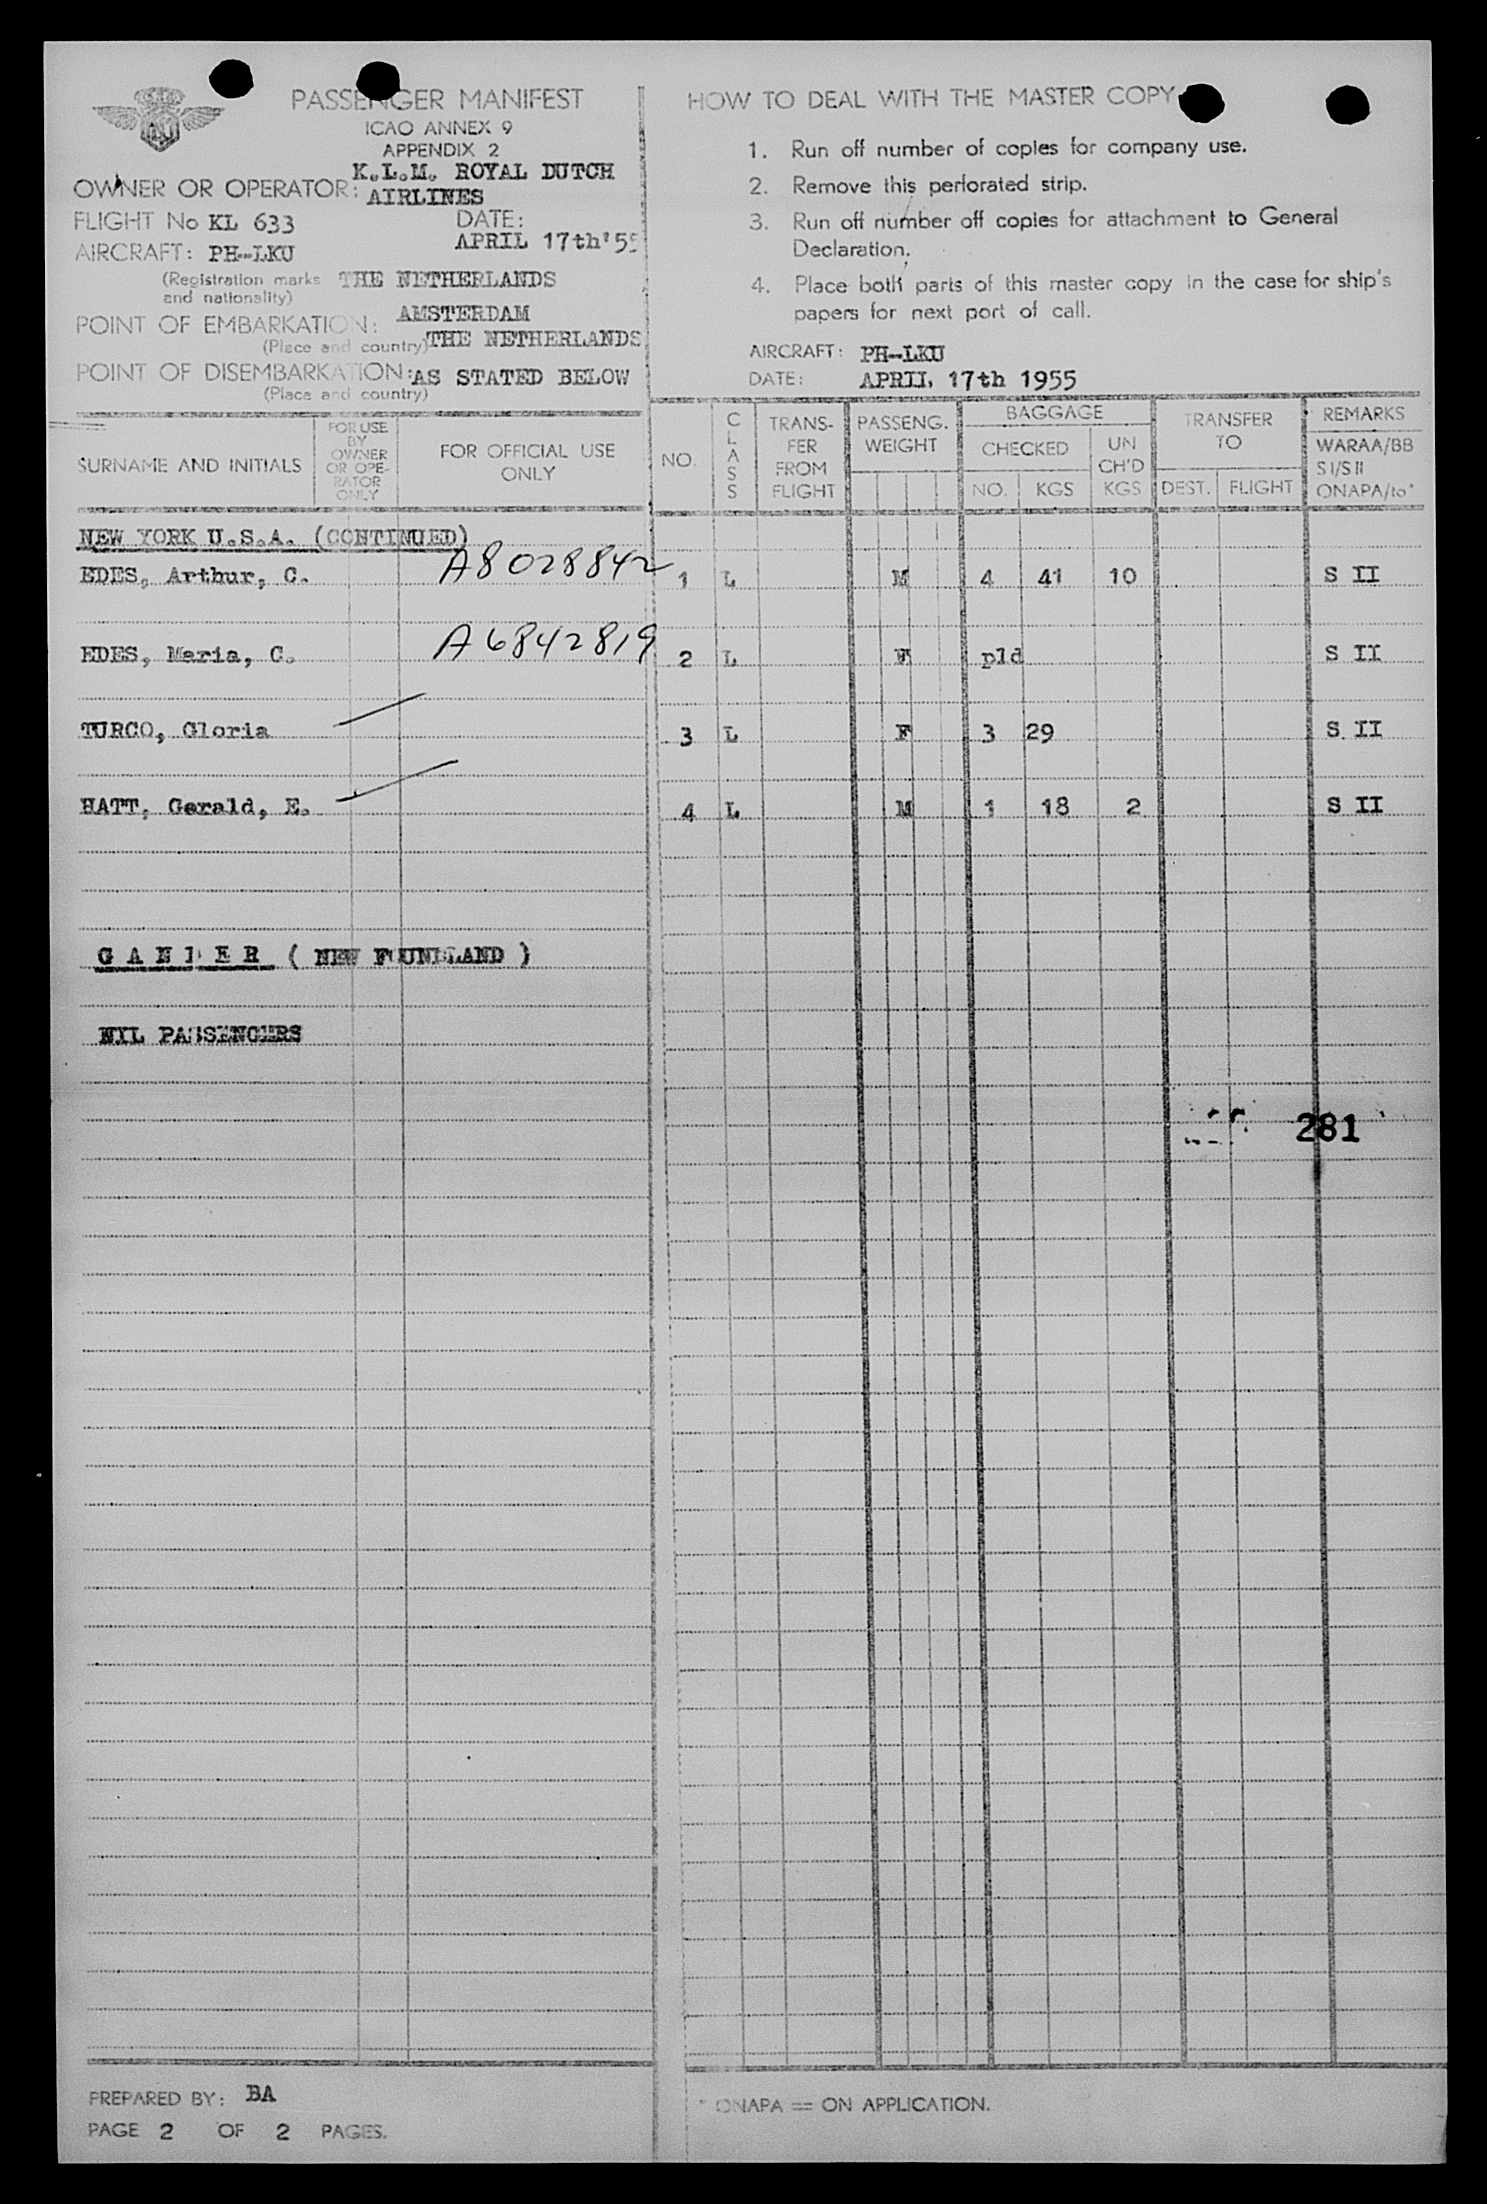 PASSENGER MANIFEST
ICAO ANNEX 9
APPENDIX 2
OWNER OR OPERATOR: K.L.M. ROYAL DUTCH
AIRLINES
FLIGHT No KL 633 DATE:
APRIL 17th'55
AIRCRAFT: PH-LKU
(Registration marks THE NETHERLANDS
and nationality)
POINT OF EMBARKATION: AMSTERDAM
(Place and country) THE NETHERLANDS
POINT OF DISEMBARKATION: AS STATED BELOW
(Place and country)
HOW TO DEAL WITH THE MASTER COPY
1. Run off number of copies for company use.
2. Remove this perforated strip.
3. Run off number off copies for attachment to General
Declaration.
4. Place both parts of this master copy in the case for ship's
papers for next port of call.
AIRCRAFT: PH-LKU
DATE: APRIL 17th 1955
SURNAME AND INITIALS
FOR USE
BY
OWNER
OR OPE-
RATOR
ONLY
FOR OFFICIAL USE
ONLY
NO.
CLASS
TRANS-
FER
FROM
FLIGHT
PASSENG.
WEIGHT
BAGGAGE
CHECKED
NO. KGS
UN
CH'D
KGS
TRANSFER
TO
DEST. FLIGHT
REMARKS
WARAA/BB
SI/SII
ONAPA/to*
NEW YORK U.S.A. (CONTINUED)
EDES, Arthur, C. A8028842 1 L M 4 41 10 S II
EDES, Maria, C. A6842819 2 L F pld S II
TURCO, Gloria 3 L F 3 29 S II
HATT, Gerald, E. 4 L M 1 18 2 S II
G A N D E R ( NEW FOUNDLAND )
NYL PASSENGERS
281
PREPARED BY: BA
PAGE 2 OF 2 PAGES.
* ONAPA = ON APPLICATION.